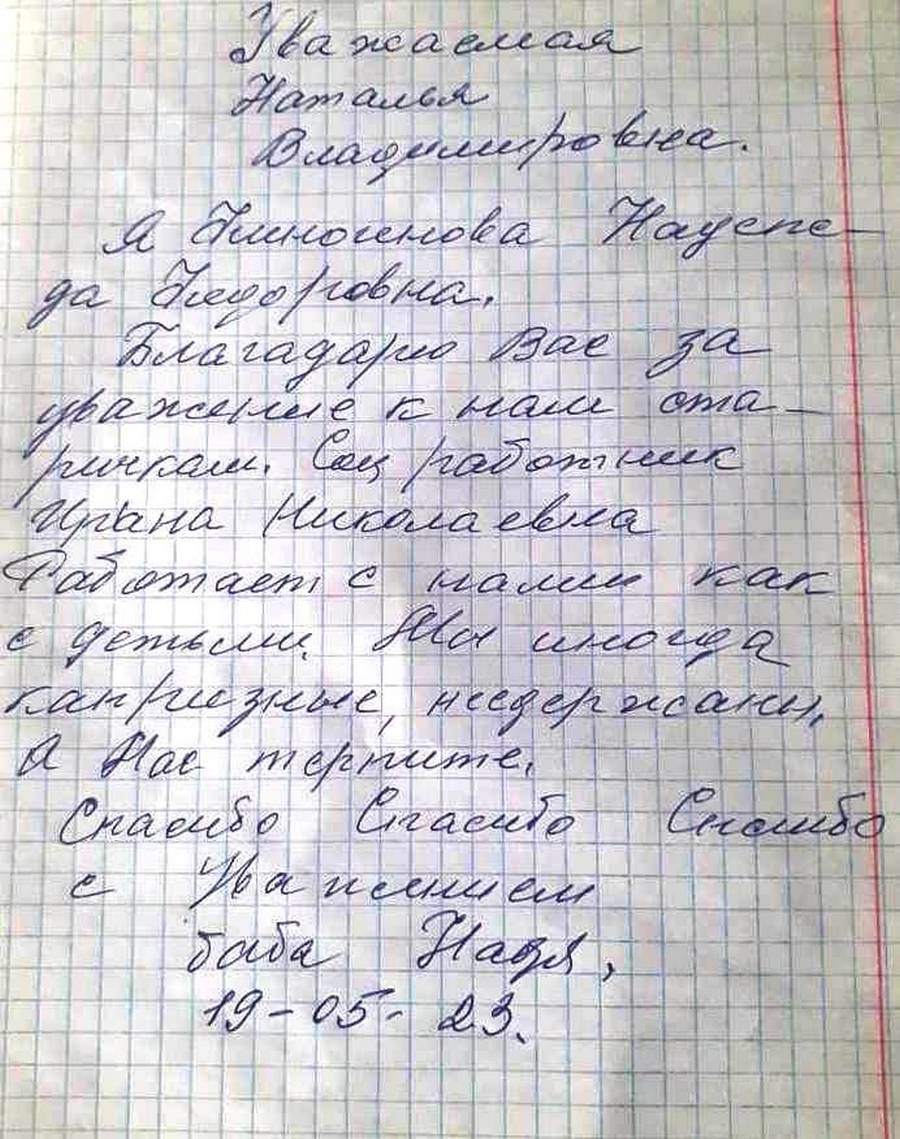 Уважаемая
Наталья
Владимировна.
Я
да Фёдоровна.
Благадарю Вас за
уважение к нам ста-
ричкам. Соц работник
Ирина Николаевна
Работает с нами как
с детьми. Мы иногда
капризные, несдержаны,
А Нас терпите.
Спасибо Спасибо Спасибо
с Уважением
баба Надя,
19-05-23.